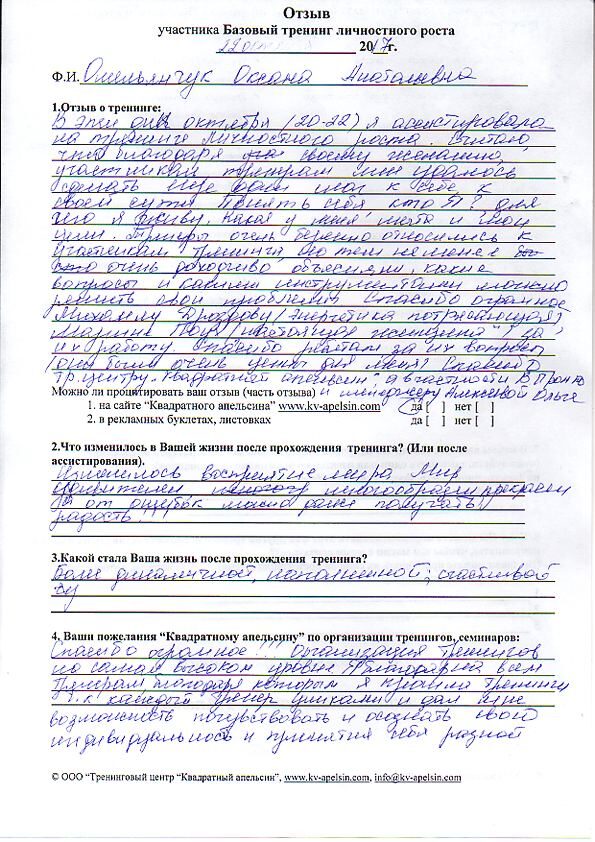 Отзыв
участника Базовый тренинг личностного роста
22 2017г.
Ф.И. Омельянчук Оксана Анатолиевна
1.Отзыв о тренинге:
В эти дни октября (20-22) я ассистировала
на тренинге личностного роста. Считаю,
что благодаря своему желанию,
участникам, тренерам мне удалось
сделать еще один шаг к себе, к
своей сути. Понять себя кто Я? Для
чего я живу, какая у меня мечта и мои
цели. Тренеры очень бережно относились к
участникам тренинга, но тем не менее
очень доходчиво объясняли, какие
вопросы и какими инструментами можно
решить свои проблемы. Спасибо огромное
Михаилу (энергетика потрясающая)
Марине (настоящая женщина) за
их работу. Спасибо ребятам за их вопросы
(они были очень ценны для меня). Спасибо
Тр.центру "Квадратный апельсин", в частности
Можно ли процитировать ваш отзыв (часть отзыва) и менеджеру Алексеевой Ольге
1. на сайте “Квадратного апельсина” www.kv-apelsin.com да [ ] нет [ ]
2. в рекламных буклетах, листовках да [ ] нет [ ]
2.Что изменилось в Вашей жизни после прохождения тренинга? (Или после
ассистирования).
Изменилось восприятие мира. Мир
многообразен, прекрасен
и от ошибок можно даже получать
радость!
3.Какой стала Ваша жизнь после прохождения тренинга?
Более динамичной, наполненной, счастливой
4. Ваши пожелания “Квадратному апельсину” по организации тренингов,семинаров:
Спасибо огромное!!! Организация тренингов
на самом высоком уровне. Я благодарна всем
тренерам благодаря которым я прошла тренинги
т.к. каждый тренер уникален и дал мне
возможность почувствовать и осознать свою
индивидуальность и принятия себя разной
© ООО “Тренинговый центр “Квадратный апельсин”, www.kv-apelsin.com, info@kv-apelsin.com